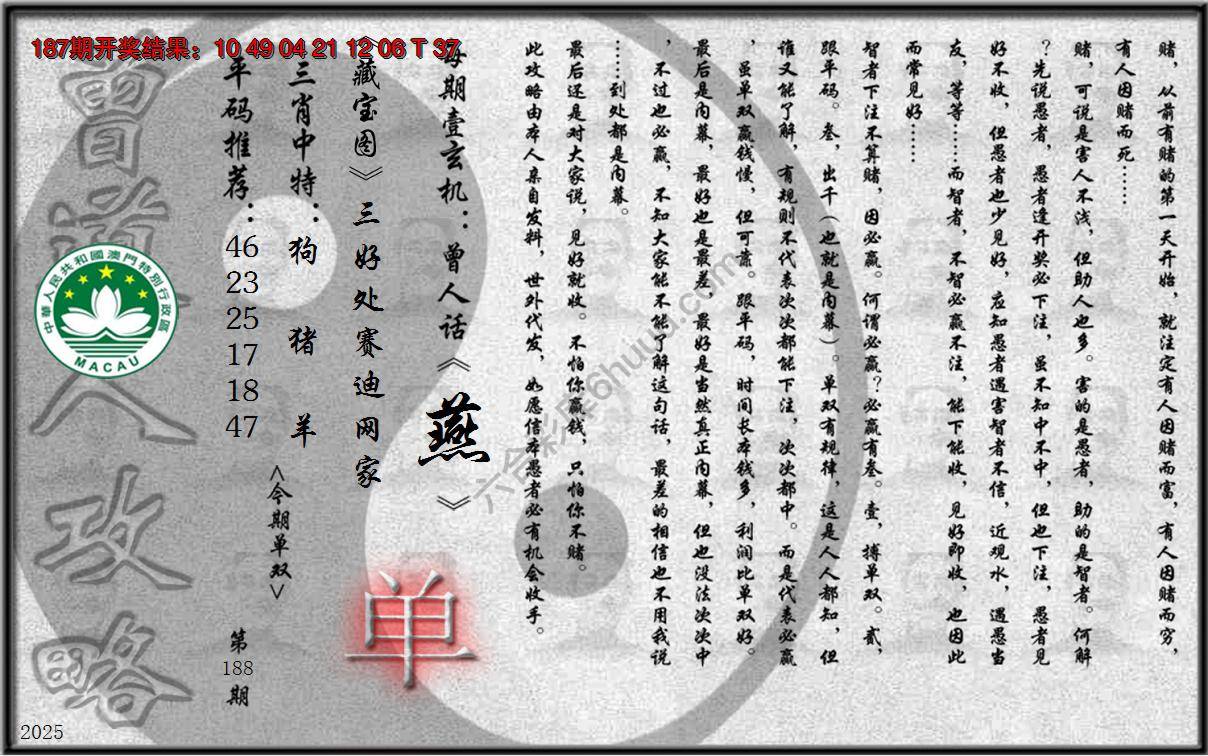 187期开奖结果：10 49 04 21 12 06 T 37
赌，从前有赌的第一天开始，就注定有人因赌而富，有人因赌而穷，
有人因赌而死……
赌，可说是害人不浅，但助人也多。害的是愚者，助的是智者。何解
？先说愚者，愚者逢开奖必下注，虽不知中不中，但也下注，愚者见
好不收，但愚者也少见好，应知愚者遇害智者不信，近观水，遇愚当
友，等等……而智者，不智必赢不注，能下能收，见好即收，也因此
而常见好……
智者下注不算赌，因必赢。何谓必赢？必赢有叁。壹，搏单双。贰，
跟平码。叁，出千（也就是内幕）。单双有规律，这是人人都知，但
谁又能了解，有规则不代表次次都能下注，次次都中。而是代表必赢
，虽单双赢钱慢，但可靠。跟平码，时间长本钱多，利润比单双好。
最后是内幕，最好也是最差，最好是当然真正内幕，但也没法次次中
，不过也必赢，不知大家能不能了解这句话，最差的相信也不用我说
……到处都是内幕。
最后还是对大家说，见好就收。不怕你赢钱，只怕你不赌。
此攻略由本人亲自发料，世外代发，如愿信本愚者必有机会收手。
每期壹玄机：曾人话《燕》
《藏宝图》三好处赛迪网家
单
三肖中特：狗 猪 羊
<今期单双>
平码推荐：46 23 25 17 18 47
第188期
曾道人攻略
中華人民共和國澳門特別行政區
MACAU
2025
六合彩库6huuu.com